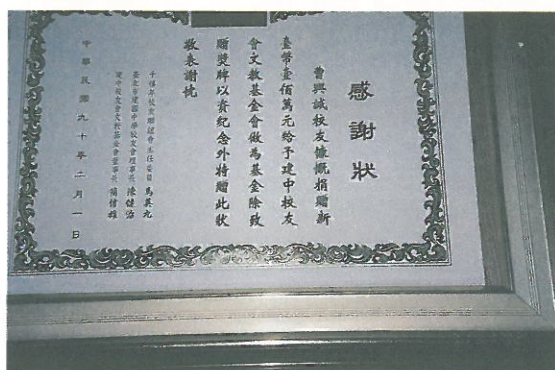 感謝狀
曹興誠校友慷慨捐贈新
臺幣壹佰萬元給予建中校友
會文教基金會做為基金除致
贈獎牌以資紀念外特贈此狀
敬表謝忱
千禧年校友聯誼會主任委員 馬英九
臺北市建國中學校友會理事長 陳健治
建中校友會文教基金會董事長 簡信雄
中華民國九十年二月一日